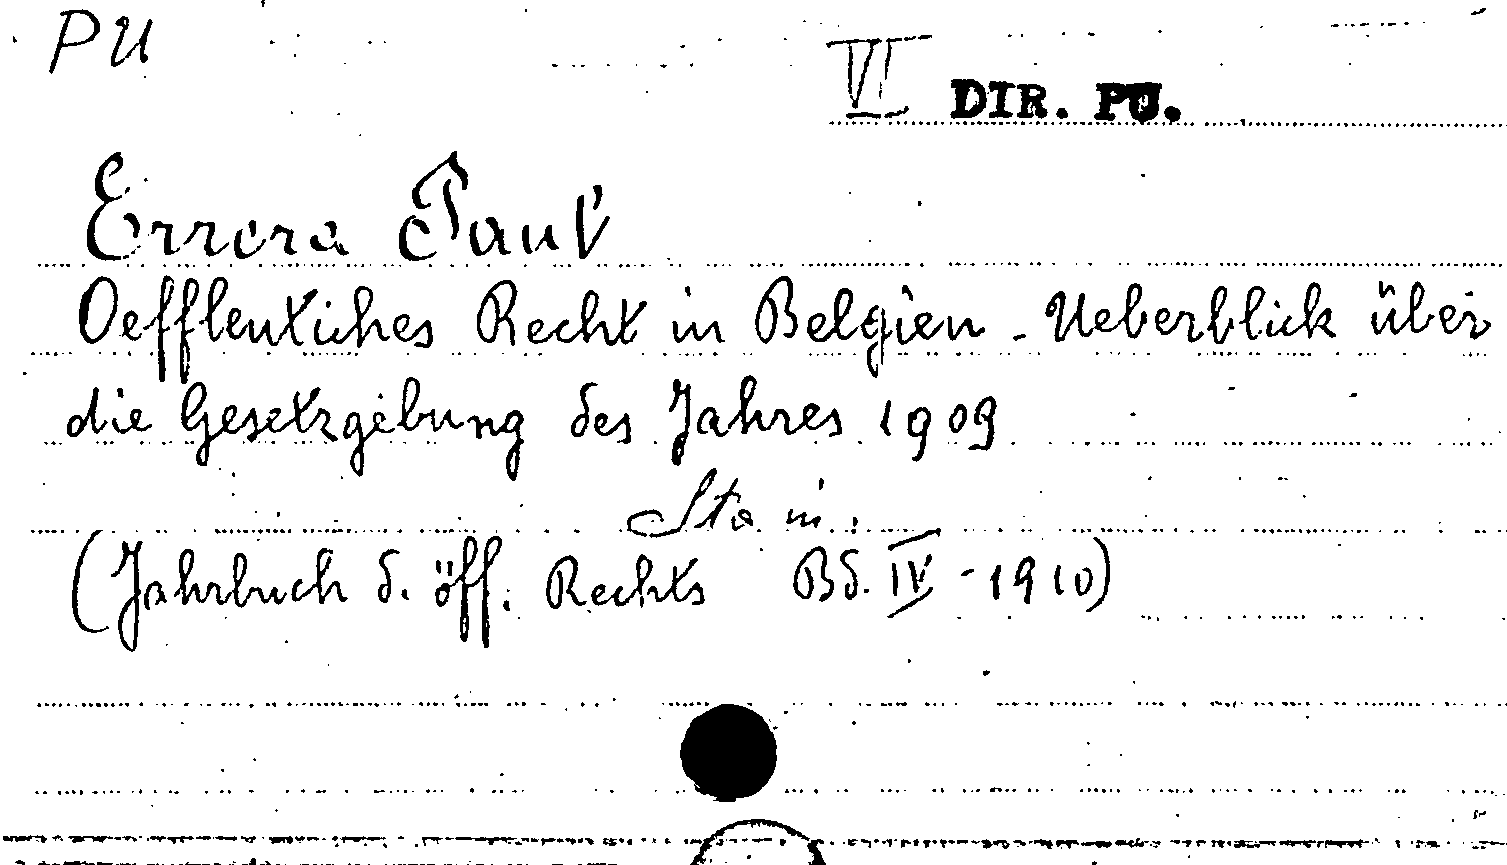 PU
VI DIR. PU.
Errera Paul
Oeffentliches Recht in Belgien - Ueberblick über
die Gesetzgebung des Jahres 1909
Sta in:
(Jahrbuch d. öff. Rechts Bd. IV - 1910)